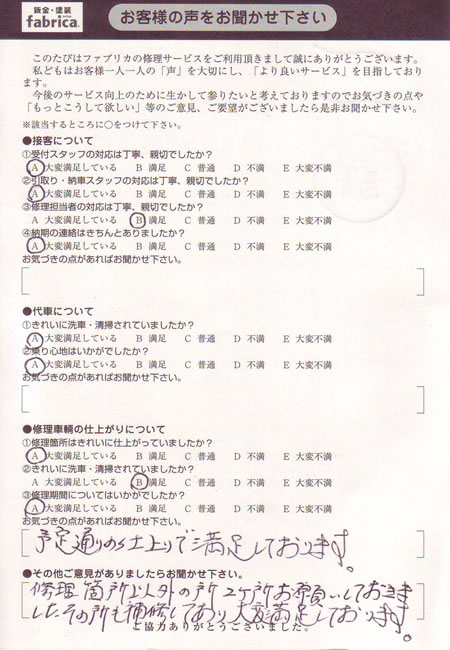 鈑金・塗装
fabrica.
お客様の声をお聞かせ下さい
このたびはファブリカの修理サービスをご利用頂きまして誠にありがとうございます。
私どもはお客様一人一人の「声」を大切にし、「より良いサービス」を目指しており
ます。
今後のサービス向上のために生かして参りたいと考えておりますのでお気づきの点や
「もっとこうして欲しい」等のご意見、ご要望がございましたら是非お聞かせ下さい。
※該当するところに○をつけて下さい。
●接客について
①受付スタッフの対応は丁寧、親切でしたか?
A 大変満足している B 満足 C 普通 D 不満 E 大変不満
②引取り・納車スタッフの対応は丁寧、親切でしたか?
A 大変満足している B 満足 C 普通 D 不満 E 大変不満
③修理担当者の対応は丁寧、親切でしたか?
A 大変満足している B 満足 C 普通 D 不満 E 大変不満
④納期の連絡はきちんとありましたか?
A 大変満足している B 満足 C 普通 D 不満 E 大変不満
お気づきの点があればお聞かせ下さい。
●代車について
①きれいに洗車・清掃されていましたか?
A 大変満足している B 満足 C 普通 D 不満 E 大変不満
②乗り心地はいかがでしたか?
A 大変満足している B 満足 C 普通 D 不満 E 大変不満
お気づきの点があればお聞かせ下さい。
●修理車輌の仕上がりについて
①修理箇所はきれいに仕上がっていましたか?
A 大変満足している B 満足 C 普通 D 不満 E 大変不満
②きれいに洗車・清掃されていましたか?
A 大変満足している B 満足 C 普通 D 不満 E 大変不満
③修理期間についてはいかがでしたか?
A 大変満足している B 満足 C 普通 D 不満 E 大変不満
お気づきの点があればお聞かせ下さい。
予定通りの仕上りで満足しております。
●その他ご意見がありましたらお聞かせ下さい。
修理箇所以外の所2ヶ所お願いしておきま
した。その所も補修してあり大変満足しております。
ご協力ありがとうございました。